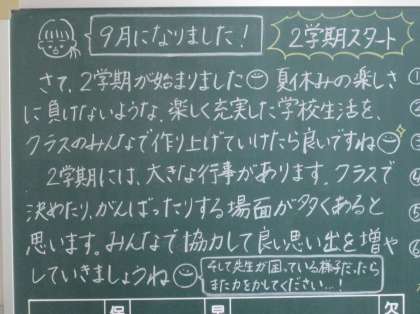 9月になりました!
2学期スタート
さて、2学期が始まりました 夏休みの楽しさ
に負けないような、楽しく充実した学校生活を、
クラスのみんなで作り上げていけたら良いですね
2学期には、大きな行事があります。クラスで
決めたり、がんばったりする場面が多くあると
思います。みんなで協力して良い思い出を増や
していきましょうね
そして先生が困っている様子だったら
また力をかしてください…!